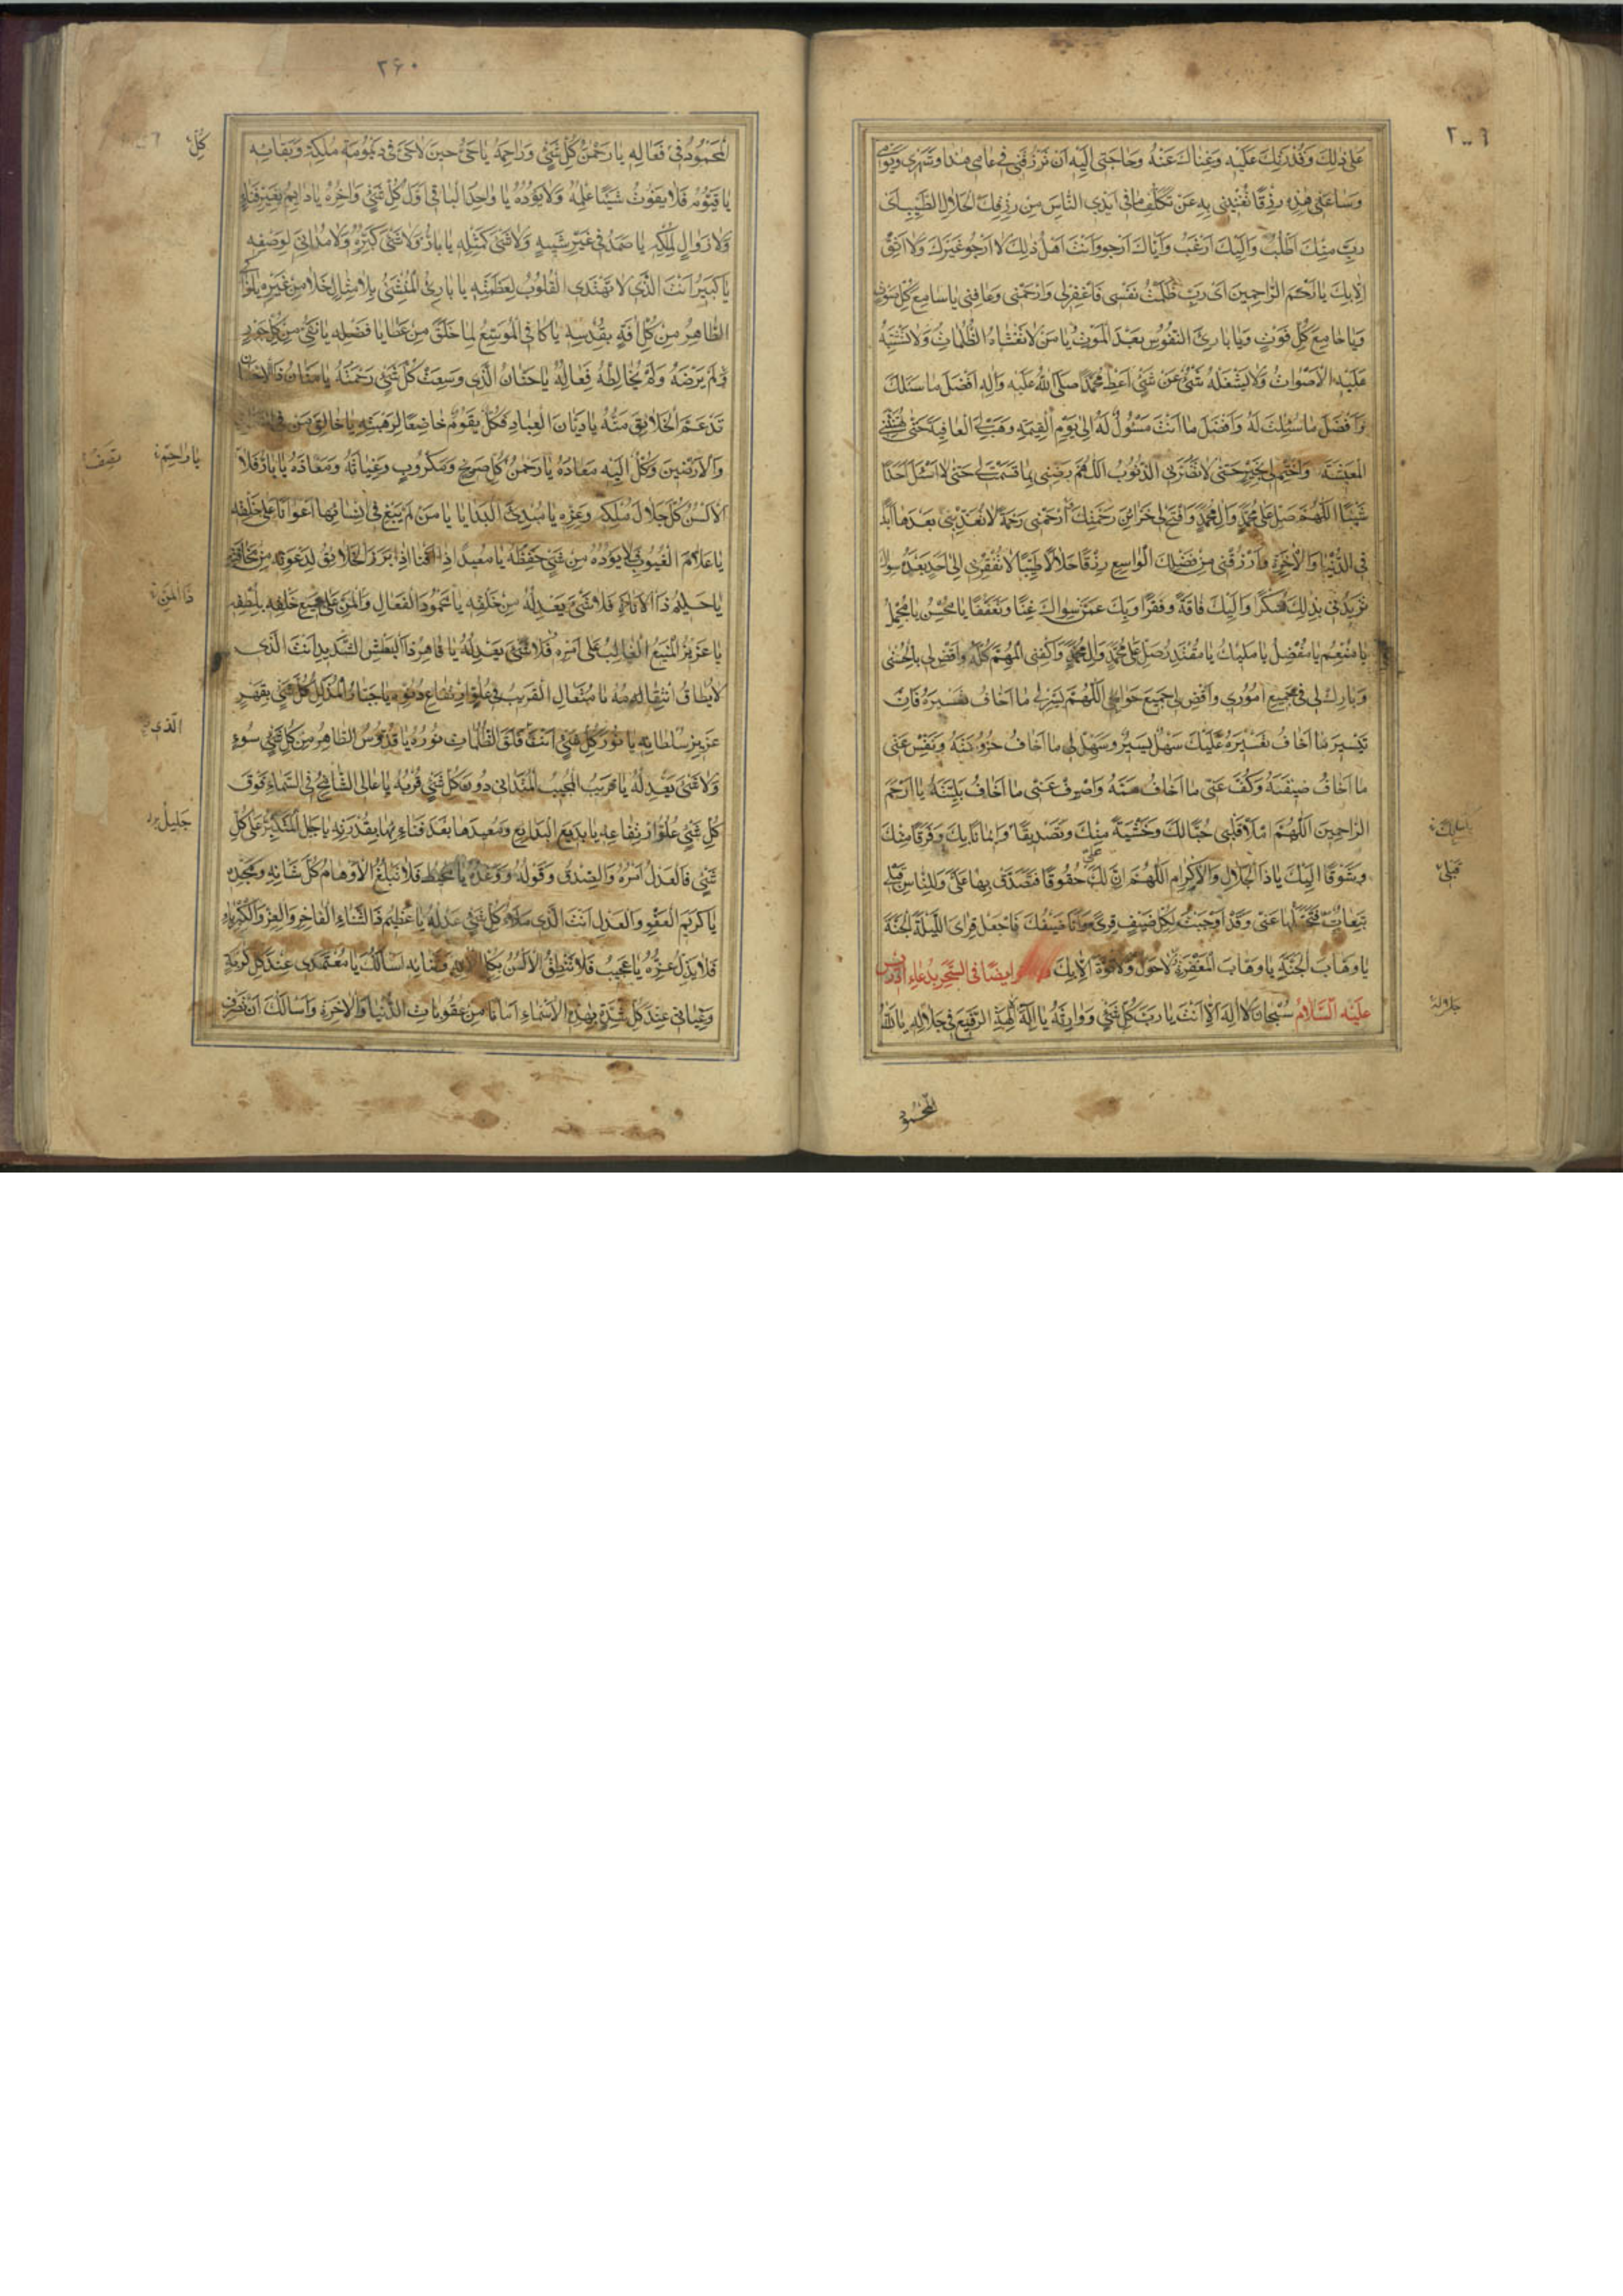 عَلى ذٰلِكَ وَقُدْرَتِكَ عَلَيْهِ وَغِناكَ عَنْهُ وَحاجَتى اِلَيْهِ اَنْ تَرْزُقَنى فى عامى هٰذا وَشَهْرى وَيَوْمى
وَساعَتى هٰذِهِ رِزْقًا تُغْنِينى بِهِ عَنْ تَكَلُّفِ ما فى اَيْدِى النّاسِ مِنْ رِزْقِكَ الْحَلالِ الطَّيِّبِ اَىْ
رَبِّ مِنْكَ اَطْلُبُ وَاِلَيْكَ اَرْغَبُ وَاِيّاكَ اَرْجُو وَاَنْتَ اَهْلُ ذٰلِكَ لا اَرْجُو غَيْرَكَ وَلا اَثِقُ
اِلّا بِكَ يا اَرْحَمَ الرّاحِمينَ اَىْ رَبِّ ظَلَمْتُ نَفْسى فَاغْفِرْلى وَارْحَمْنى وَعافِنى يا سامِعَ كُلِّ صَوْتٍ
وَيا جامِعَ كُلِّ فَوْتٍ وَيا بارِئَ النُّفُوسِ بَعْدَ الْمَوْتِ يا مَنْ لا تَغْشاهُ الظُّلُماتُ وَلا تَشْتَبِهُ
عَلَيْهِ الْاَصْواتُ وَلا يَشْغَلُهُ شَىْءٌ عَنْ شَىْءٍ اَعْطِ مُحَمَّدًا صَلَّى اللهُ عَلَيْهِ وَآلِهِ اَفْضَلَ ما سَئَلَكَ
وَاَفْضَلَ ما سُئِلْتَ لَهُ وَاَفْضَلَ ما اَنْتَ مَسْئُولٌ لَهُ اِلى يَوْمِ الْقِيمَةِ وَهَبْ لِىَ الْعافِيَةَ حَتّى تُهَنِّئَنى
الْمَعيشَةَ وَاخْتِمْ لى بِخَيْرٍ حَتّى لا تَضُرَّنى الذُّنُوبُ اَللّٰهُمَّ رَضِّنى بِما قَسَمْتَ لى حَتّى لا اَسْئَلَ اَحَدًا
شَيْئًا اَللّٰهُمَّ صَلِّ عَلى مُحَمَّدٍ وَآلِ مُحَمَّدٍ وَافْتَحْ لى خَزائِنَ رَحْمَتِكَ وَارْحَمْنى رَحْمَةً لا تُعَذِّبْنى بَعْدَها اَبَدًا
فِى الدُّنْيا وَالْاٰخِرَةِ وَارْزُقْنى مِنْ فَضْلِكَ الْواسِعِ رِزْقًا حَلالًا طَيِّبًا لا تُفْقِرْنى اِلى اَحَدٍ بَعْدَهُ سِواكَ
تَزيدُنى بِذٰلِكَ شُكْرًا وَاِلَيْكَ فاقَةً وَفَقْرًا وَبِكَ عَمَّنْ سِواكَ غِنًا وَتَعَفُّفًا يا مُحْسِنُ يا مُجْمِلُ
يا مُنْعِمُ يا مُفْضِلُ يا مَليكُ يا مُقْتَدِرُ صَلِّ عَلى مُحَمَّدٍ وَآلِ مُحَمَّدٍ وَاكْفِنى الْمُهِمَّ كُلَّهُ وَاقْضِ لى بِالْحُسْنى
وَبارِكْ لى فى جَميعِ اُمُورى وَاقْضِ لى جَميعَ حَوائِجى اَللّٰهُمَّ يَسِّرْ لى ما اَخافُ تَعْسيرَهُ فَاِنَّ
تَيْسيرَ ما اَخافُ تَعْسيرَهُ عَلَيْكَ سَهْلٌ يَسيرٌ وَسَهِّلْ لى ما اَخافُ حُزُونَتَهُ وَنَفِّسْ عَنّى
ما اَخافُ ضيقَتَهُ وَكُفَّ عَنّى ما اَخافُ هَمَّهُ وَاصْرِفْ عَنّى ما اَخافُ بَلِيَّتَهُ يا اَرْحَمَ
الرّاحِمينَ اَللّٰهُمَّ امْلَأْ قَلْبى حُبًّا لَكَ وَخَشْيَةً مِنْكَ وَتَصْديقًا وَايمانًا بِكَ وَفَرَقًا مِنْكَ
وَشَوْقًا اِلَيْكَ يا ذَا الْجَلالِ وَالْاِكْرامِ اَللّٰهُمَّ اِنَّ لَكَ حُقُوقًا فَتَصَدَّقْ بِها عَلَىَّ وَلِلنّاسِ قِبَلى
تَبِعاتٌ فَتَحَمَّلْها عَنّى وَقَدْ اَوْجَبْتَ لِكُلِّ ضَيْفٍ قِرًى وَاَنَا ضَيْفُكَ فَاجْعَلْ قِراىَ اللَّيْلَةَ الْجَنَّةَ
يا وَهّابَ الْجَنَّةِ يا وَهّابَ الْمَغْفِرَةِ لا حَوْلَ وَلا قُوَّةَ اِلّا بِكَ ايضًا فى السَّحَر بدُعاءِ ادريس
عَلَيْهِ السَّلامُ سُبْحانَكَ لا اِلٰهَ اِلّا اَنْتَ يا رَبَّ كُلِّ شَىْءٍ وَوارِثَهُ يا اِلٰهَ الْاٰلِهَةِ الرَّفيعَ فى جَلالِهِ يا اَللهُ
قِبَلى
المحمود
۲۶۰
الْمَحْمُودُ فى فِعالِهِ يا رَحْمٰنَ كُلِّ شَىْءٍ وَراحِمَهُ يا حَىُّ حينَ لا حَىَّ فى دَيْمُومَةِ مُلْكِهِ وَبَقائِهِ
يا قَيُّومُ فَلا يَفُوتُ شَيْئًا عِلْمُهُ وَلا يَؤُدُهُ يا واحِدُ الْباقى اَوَّلَ كُلِّ شَىْءٍ وَاٰخِرَهُ يا دائِمُ بِغَيْرِ فَناءٍ
وَلا زَوالٍ لِمُلْكِهِ يا صَمَدُ فى غَيْرِ شَبيهٍ وَلا شَىْءَ كَمِثْلِهِ يا بارُّ وَلا شَىْءَ كُفْوُهُ وَلا مُدانِىَ لِوَصْفِهِ
يا كَبيرُ اَنْتَ الَّذى لا تَهْتَدِى الْقُلُوبُ لِعَظَمَتِهِ يا بارِئُ الْمُنْشِئُ بِلا مِثالٍ خَلا مِنْ غَيْرِهِ يا زاكى
الطّاهِرُ مِنْ كُلِّ اٰفَةٍ بِقُدْسِهِ يا كافِى الْمُوَسِّعُ لِما خَلَقَ مِنْ عَطايا فَضْلِهِ يا نَقِىُّ مِنْ كُلِّ جَوْرٍ
لَمْ يَرْضَهُ وَلَمْ يُخالِطْهُ فِعالُهُ يا حَنّانُ الَّذى وَسِعَتْ كُلَّ شَىْءٍ رَحْمَتُهُ يا مَنّانُ ذَا الْاِحْسانِ
قَدْ عَمَّ الْخَلائِقَ مَنُّهُ يا دَيّانَ الْعِبادِ فَكُلٌّ يَقُومُ خاضِعًا لِرَهْبَتِهِ يا خالِقَ مَنْ فِى
وَالْاَرَضينَ وَكُلٌّ اِلَيْهِ مَعادُهُ يا رَحْمٰنُ كُلِّ صَريخٍ وَمَكْرُوبٍ وَغِياثَهُ وَمَعاذَهُ يا بارُّ فَلا
الْاَلْسُنُ كُلَّ جَلالِ مُلْكِهِ وَعِزِّهِ يا مُبْدِئَ الْبَدايا يا مَنْ لَمْ يَبْغِ فى اِنْشائِها اَعْوانًا عَلى خَلْقِهِ
يا عَلّامَ الْغُيُوبِ فَلا يَؤُدُهُ مِنْ شَىْءٍ حِفْظُهُ يا مُعيدُ اِذا اَفْنا اِذا بَرَزَ الْخَلائِقُ لِدَعْوَتِهِ مِنْ مَخافَتِهِ
يا حَليمُ ذَا الْاَناةِ فَلا شَىْءَ يَعْدِلُهُ مِنْ خَلْقِهِ يا مَحْمُودَ الْفِعالِ وَالْمَنِّ عَلى جَميعِ خَلْقِهِ بِلُطْفِهِ
يا عَزيزُ الْمَنيعُ الْغالِبُ عَلى اَمْرِهِ فَلا شَىْءَ يَعْدِلُهُ يا قاهِرُ ذَا الْبَطْشِ الشَّديدِ اَنْتَ الَّذى
لا يُطاقُ انْتِقامُهُ يا مُتَعالِ الْقَريبُ فى عُلُوِّ ارْتِفاعِ دُنُوِّهِ يا جَبّارُ الْمُذَلِّلُ كُلَّ شَىْءٍ بِقَهْرِ
عَزيزِ سُلْطانِهِ يا نُورَ كُلِّ شَىْءٍ اَنْتَ فَلَقَ الظُّلُماتِ نُورُهُ يا قُدُّوسُ الطّاهِرُ مِنْ كُلِّ شَىْءٍ سُوءٍ
وَلا شَىْءَ يَعْدِلُهُ يا قَريبُ الْمُجيبُ الْمُتَدانى دُونَ كُلِّ شَىْءٍ قُرْبُهُ يا عالى الشّامِخُ فِى السَّماءِ فَوْقَ
كُلِّ شَىْءٍ عُلُوُّ ارْتِفاعِهِ يا بَديعَ الْبَدايِعِ وَمُعيدَها بَعْدَ فَناءِها بِقُدْرَتِهِ يا جَليلُ الْمُتَكَبِّرُ عَلى كُلِّ
شَىْءٍ فَالْعَدْلُ اَمْرُهُ وَالصِّدْقُ وَقَوْلُهُ وَوَعْدُهُ يا فَلا تَبْلُغُ الْاَوْهامُ كُلَّ شَانِهِ وَمَجْدِهِ
يا كَريمَ الْعَفْوِ وَالْعَدْلِ اَنْتَ الَّذى مَلَأَ كُلَّ شَىْءٍ عَدْلُهُ يا عَظيمُ ذَا الثَّناءِ الْفاخِرِ وَالْعِزِّ وَالْكِبْرِياءِ
فَلا يَذِلُّ عِزُّهُ يا عَجيبُ فَلا تَنْطِقُ الْاَلْسُنُ بِكُلِّ وَثَنائِهِ اَسْأَلُكَ يا مُعْتَمَدى عِنْدَ كُلِّ كُرْبَةٍ
وَغِياثى عِنْدَ كُلِّ شِدَّةٍ بِهٰذِهِ الْاَسْماءِ اَمانًا مِنْ عُقُوباتِ الدُّنْيا وَالْاٰخِرَةِ وَاَسْأَلُكَ اَنْ تَصْرِفَ
كُلِّ
يا راحِمَ
تصف
ذا المَنِّ
الّذى
جَليلُ